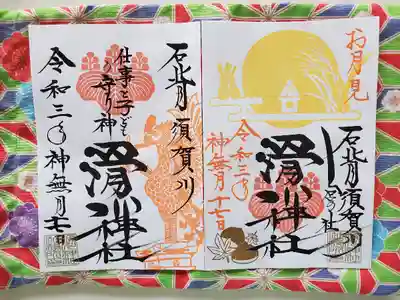 石背月須賀川
仕事と子ども
守り神
滑川神社
令和三年神無月十七日
お月見
石背月須賀川
滑川神社
令和三年
神無月十七日